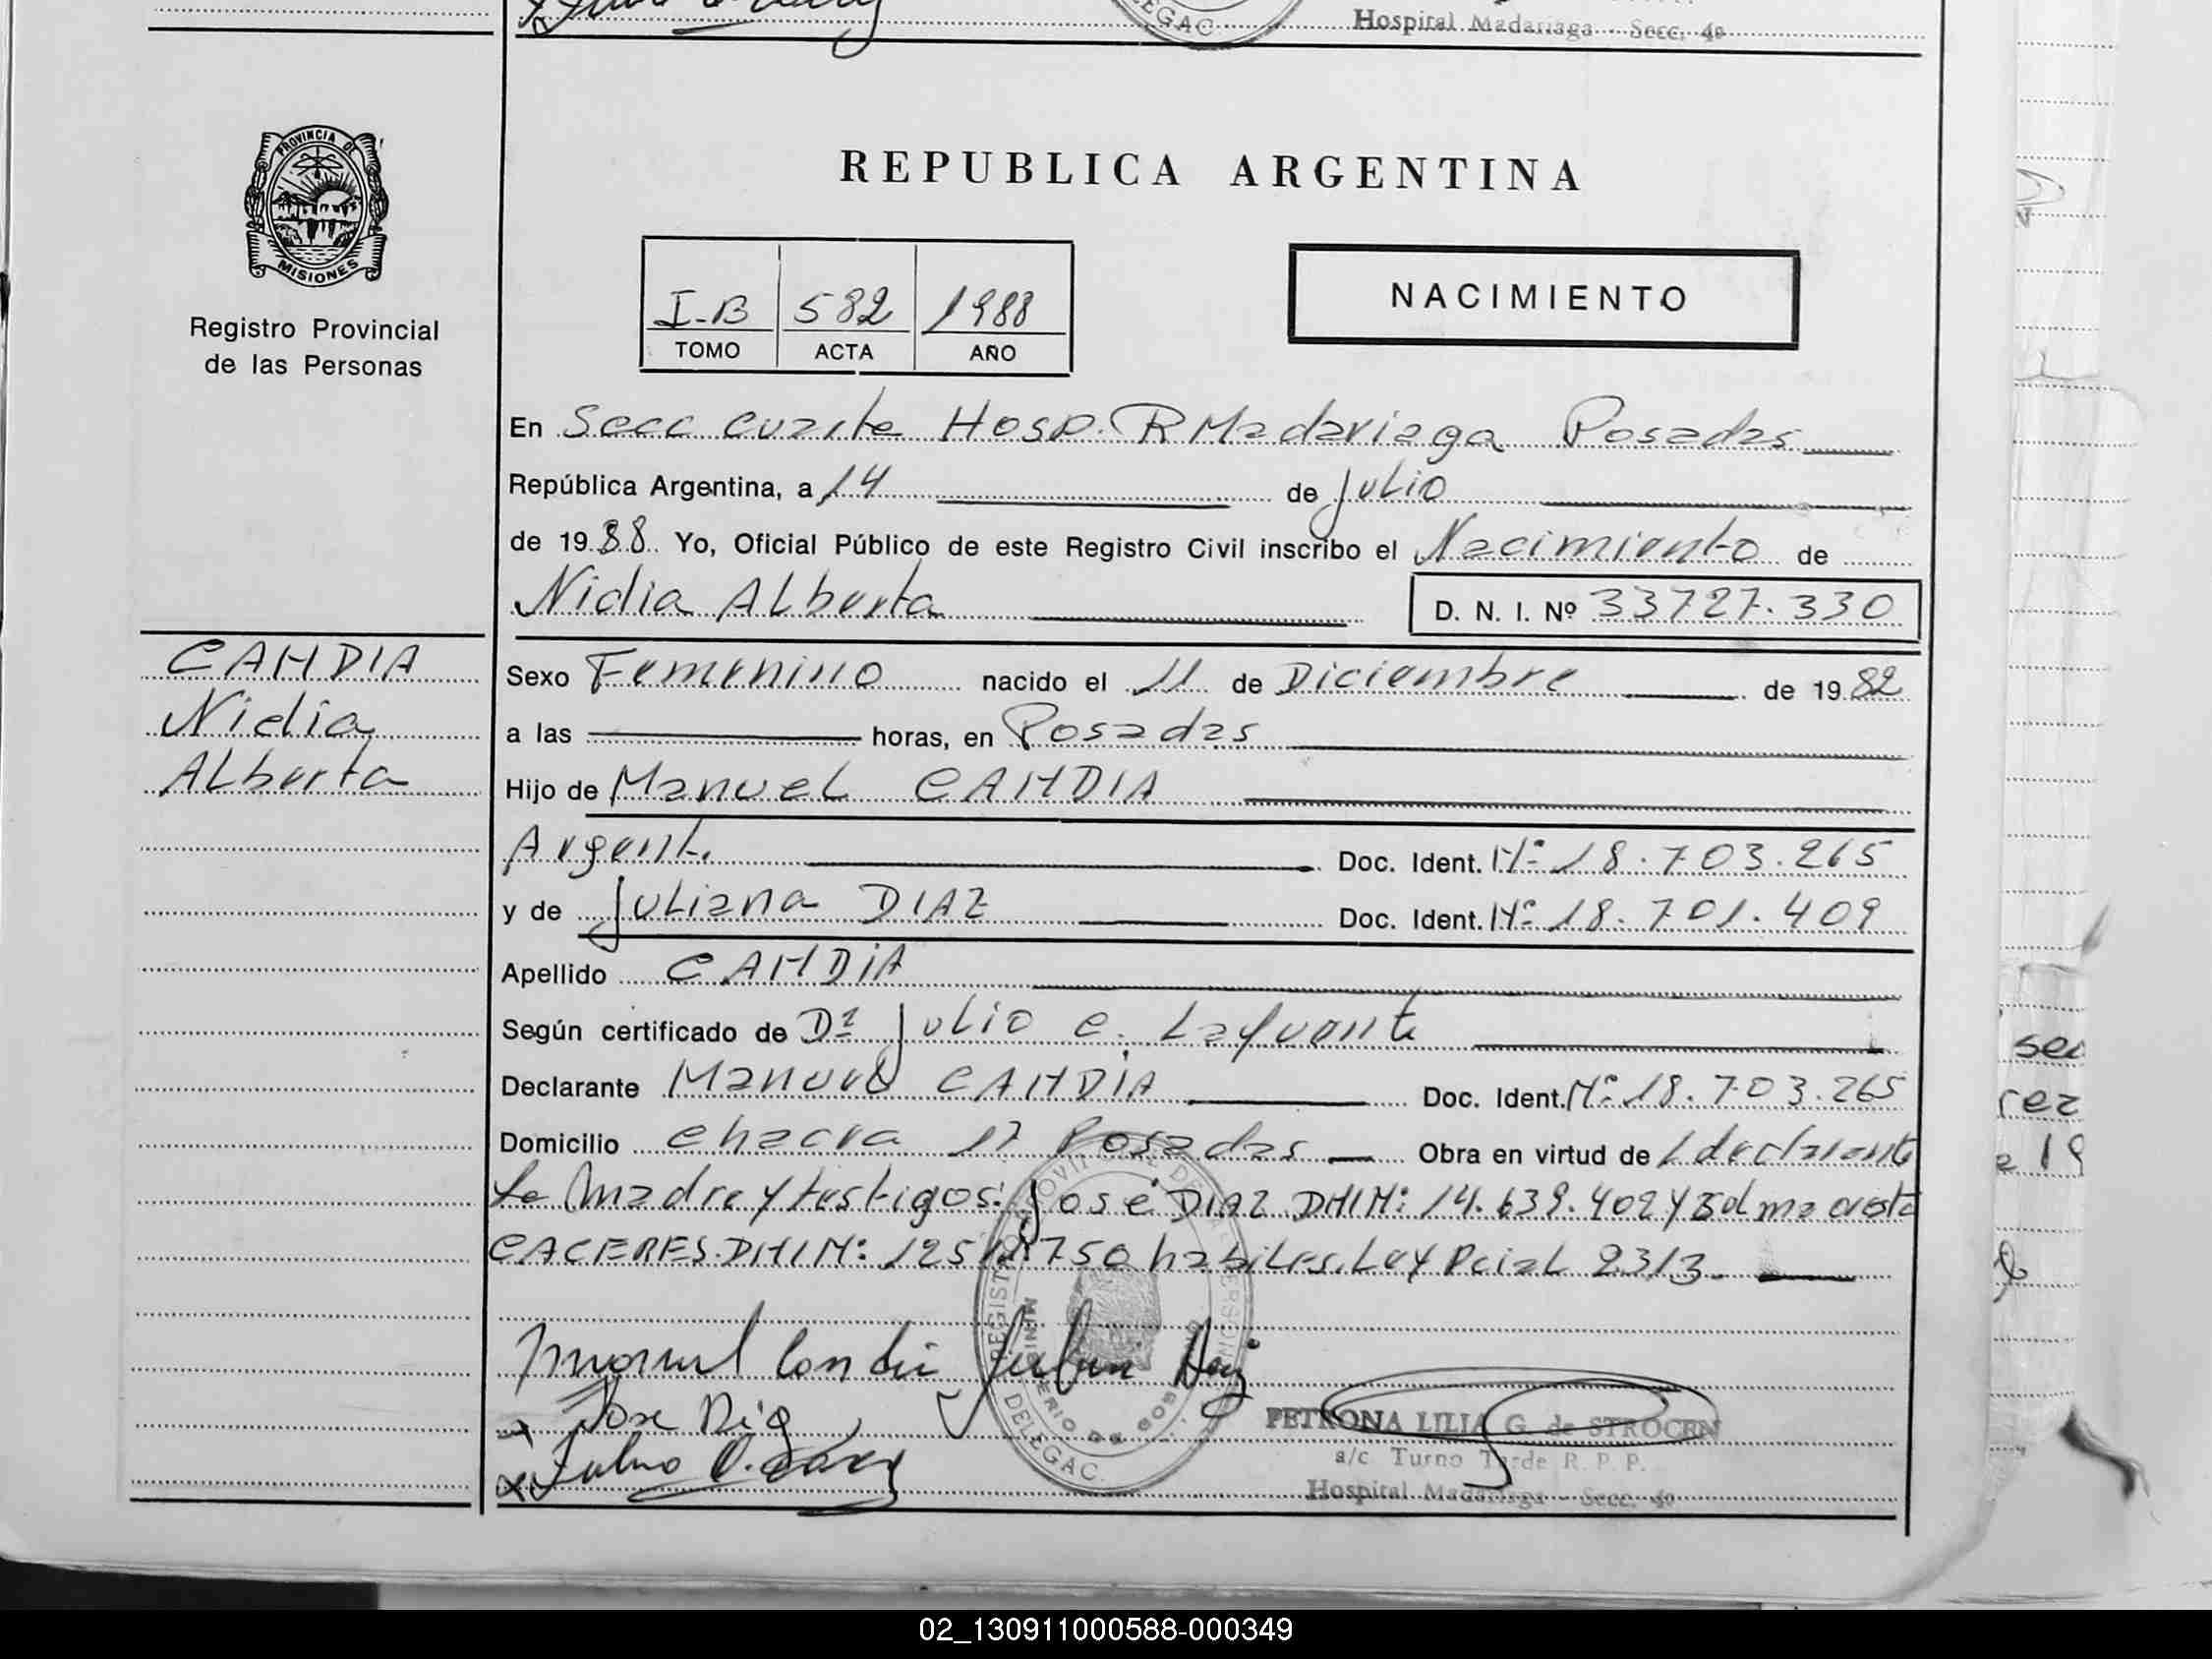 DELEGAC.
Hospital Madariaga - Secc. 4º
PROVINCIA DE
MISIONES
Registro Provincial
de las Personas
REPUBLICA ARGENTINA
I-B 582 1988
TOMO ACTA AÑO
NACIMIENTO
En Secc cuarta Hosp. R Madariaga Posadas
República Argentina, a 14 de Julio
de 1988. Yo, Oficial Público de este Registro Civil inscribo el Nacimiento de
Nidia Alberta D. N. I. Nº 33727.330
CANDIA
Nidia
Alberta
Sexo Femenino nacido el 11 de Diciembre de 1982
a las horas, en Posadas
Hijo de Manuel CANDIA
Argent. Doc. Ident. Nº 18.703.265
y de Juliana DIAZ Doc. Ident. Nº 18.701.409
Apellido CANDIA
Según certificado de Dr Julio C. Lafuente
Declarante Manuel CANDIA Doc. Ident. Nº 18.703.265
Domicilio Chacra 17 Posadas Obra en virtud de L declarante
La Madre y testigos: José DIAZ DNI N: 14.639.402 y
CACERES. DNI N: 750 habiles. Ley Pcial 2313.
Manuel Candia
Jose
PETRONA LILIA G. de STROCEN
a/c Turno Tarde R. P. P.
Hospital Madariaga - Secc. 4º
DELEGAC.
02_130911000588-000349